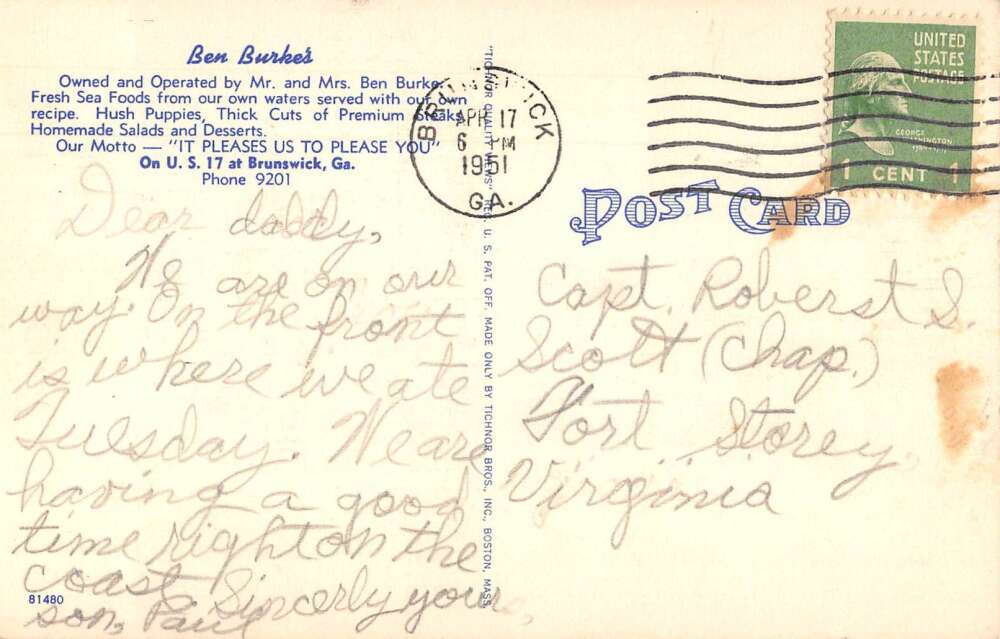 Ben Burke's
Owned and Operated by Mr. and Mrs. Ben Burke.
Fresh Sea Foods from our own waters served with our own
recipe. Hush Puppies, Thick Cuts of Premium Steaks,
Homemade Salads and Desserts.
Our Motto — "IT PLEASES US TO PLEASE YOU"
On U. S. 17 at Brunswick, Ga.
Phone 9201
Dear daddy,
We are on our
way. On the front
is where we ate
Tuesday. We are
having a good
time right on the
coast. Sincerly your
son, Paul
81480
"TICHNOR QUALITY VIEWS" REG. U. S. PAT. OFF. MADE ONLY BY TICHNOR BROS., INC., BOSTON, MASS.
BRUNSWICK
APR 17
6 PM
1951
GA.
UNITED
STATES
POSTAGE
GEORGE
WASHINGTON
1 CENT 1
POST CARD
Capt. Roberst S.
Scott (Chap.)
Fort Storey
Virginia